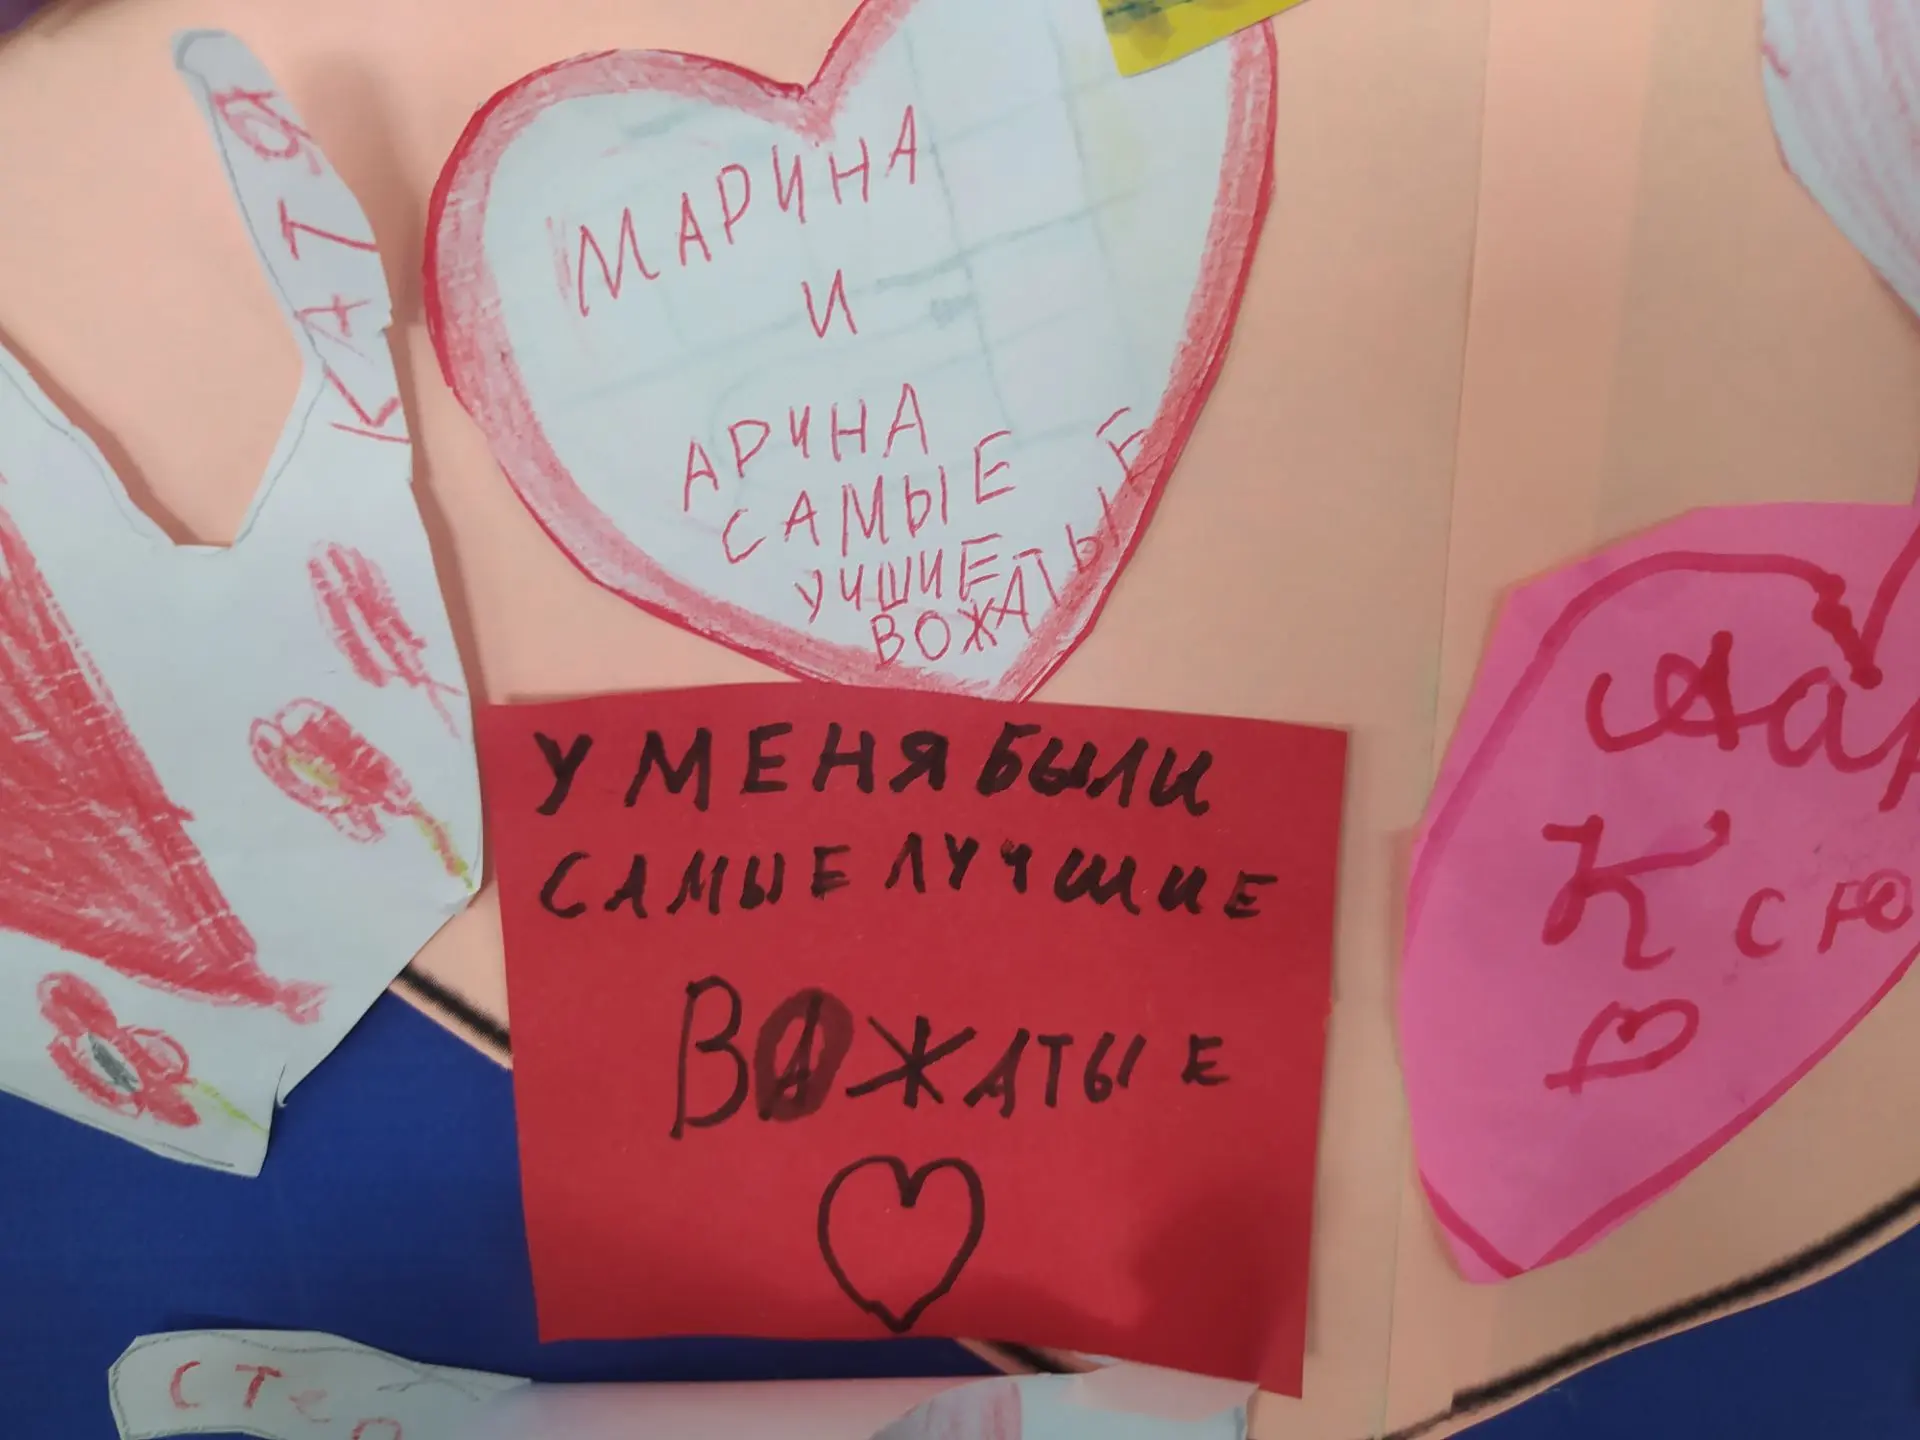 КАТЯ
МАРИНА
И
АРИНА
САМЫЕ
УЧШИЕ
ВОЖАТЫЕ
У МЕНЯ БЫЛИ
САМЫЕ ЛУЧШИЕ
ВОЖАТЫЕ